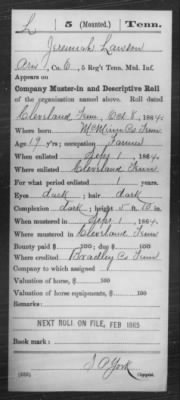 L | 5 (Mounted.) | Tenn.
Jeremiah Lawson
, Co. 6, 5 Reg't Tenn. Mtd. Inf.
Appears on
Company Muster-in and Descriptive Roll
of the organization named above. Roll dated
Cleveland Tenn, Oct 8, 1864.
Where born McMinn Co Tenn
Age 19 y'rs; occupation Farmer
When enlisted Sep 1, 1864.
Where enlisted Cleveland Tenn
For what period enlisted 1 years.
Eyes dark; hair dark
Complexion dark; height 5 ft. 10 in.
When mustered in Sep 1, 1864.
Where mustered in Cleveland Tenn
Bounty paid $ 100; due $ 100
Where credited Bradley Co Tenn
Company to which assigned
Valuation of horse, $ 100
Valuation of horse equipments, $ 100
Remarks:
NEXT ROLL ON FILE, FEB 1865
Book mark:
York
Copyist.